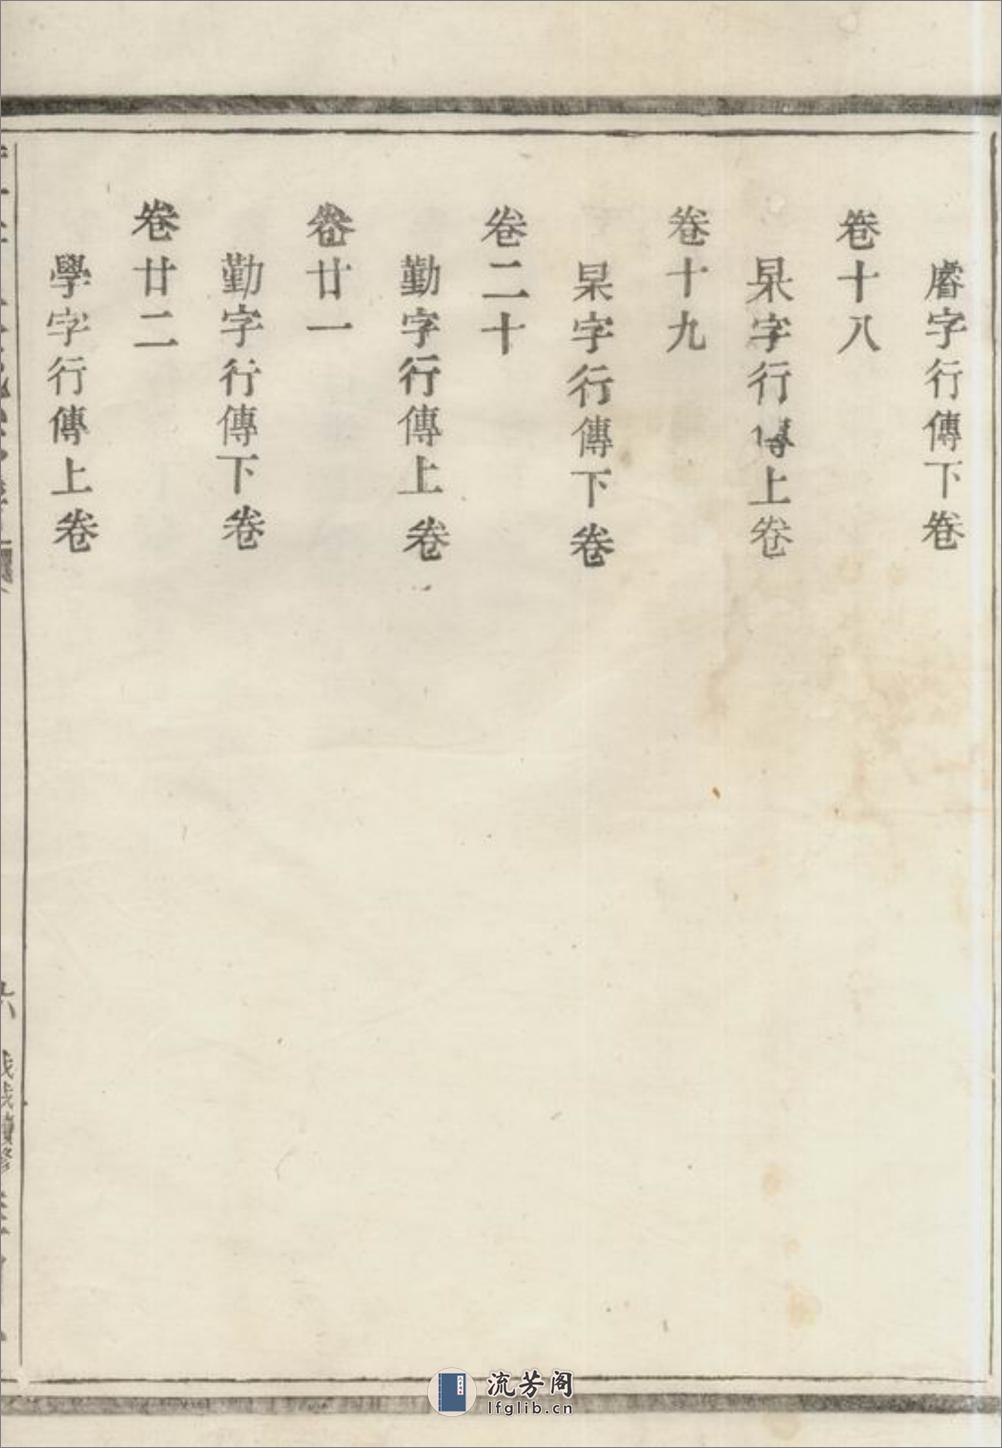 睿字行傳下卷
卷十八
杲字行傳上卷
卷十九
杲字行傳下卷
卷二十
勤字行傳上卷
卷廿一
勤字行傳下卷
卷廿二
學字行傳上卷
六
流芳阁
lfglib.cn